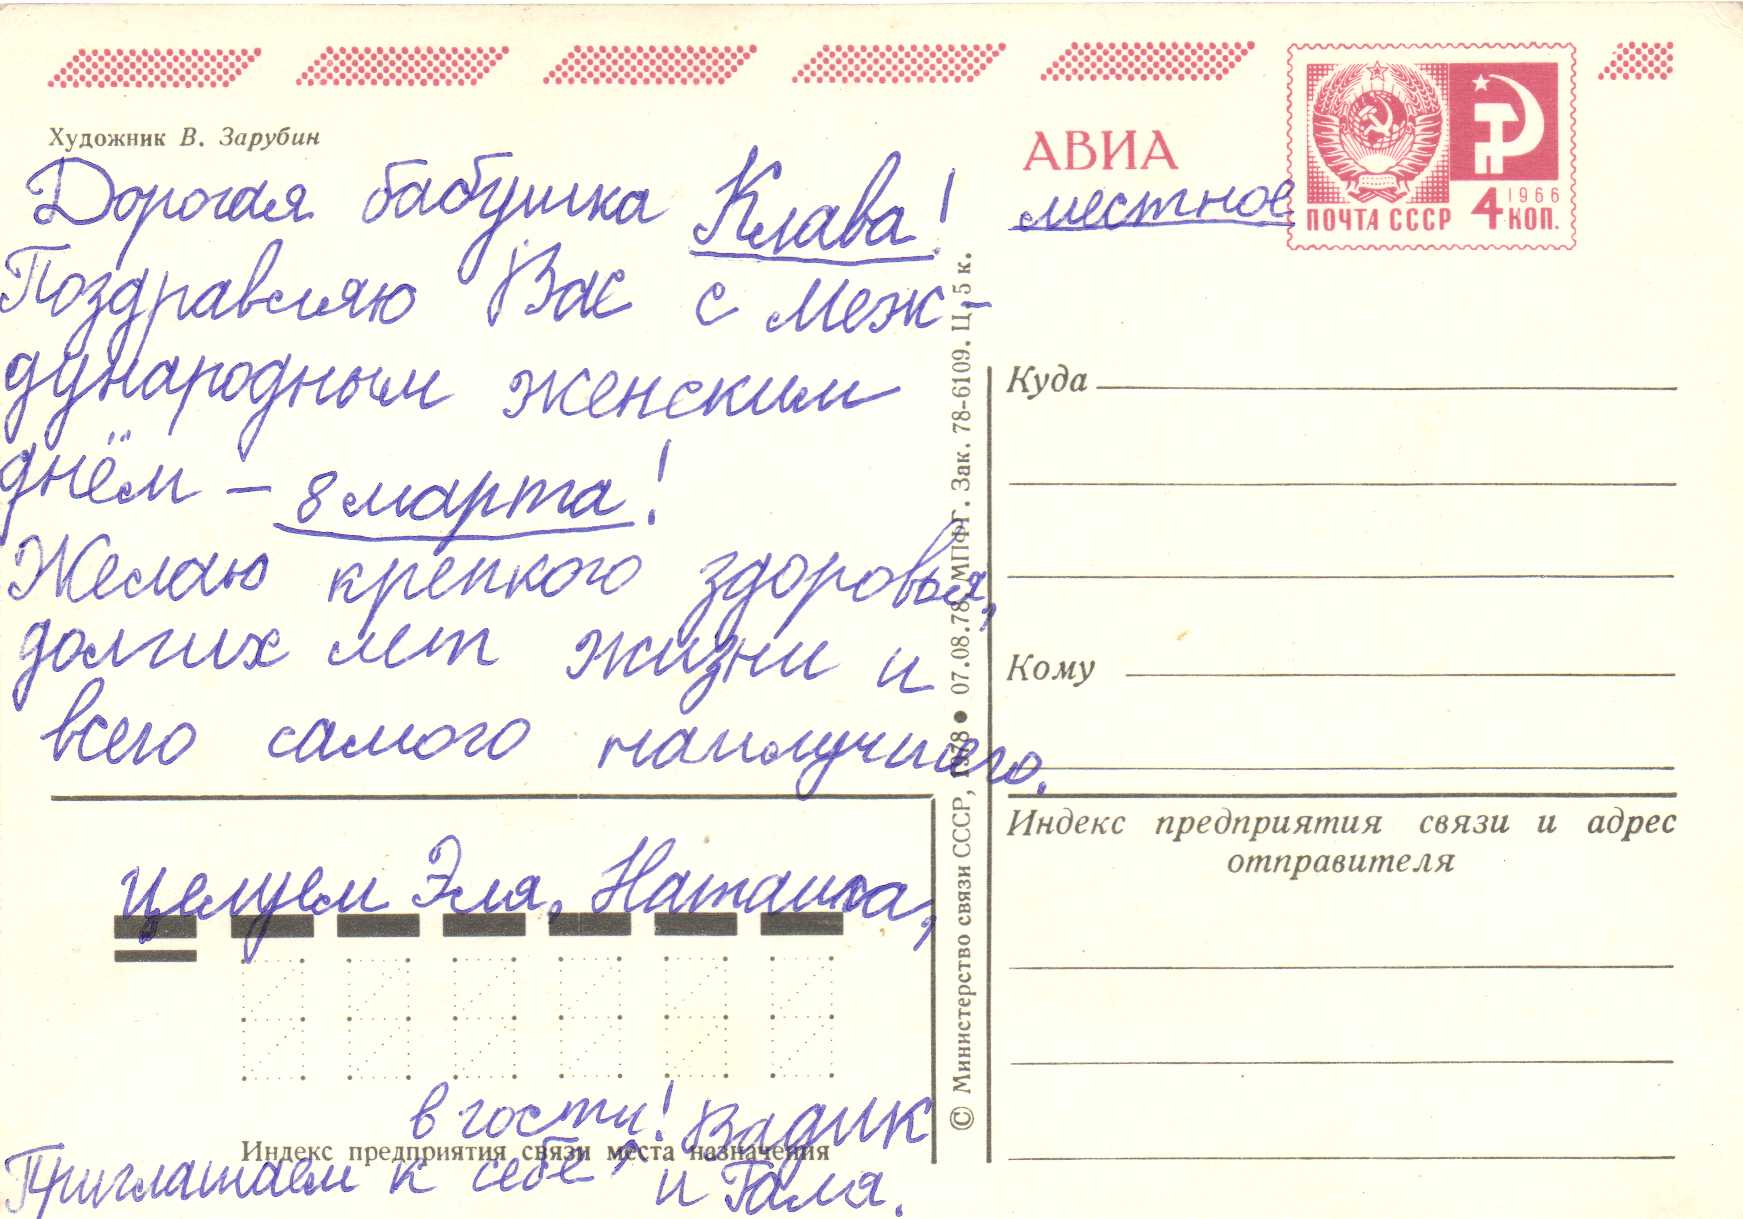 Художник В. Зарубин
АВИА
местное
ПОЧТА СССР 4 КОП.
1966
Дорогая бабушка Клава!
Поздравляю Вас с Меж-
дународным женским
днём – 8 марта!
Желаю крепкого здоровья,
долгих лет жизни и
всего самого наилучшего.
Целуем Эля, Наташа,
Вадик
и Галя.
Приглашаем к себе
в гости!
Индекс предприятия связи места назначения
© Министерство связи СССР, 1978 ● 07.08.78. МПФГ. Зак. 78-6109. Ц. 5 к.
Куда
Кому
Индекс предприятия связи и адрес
отправителя